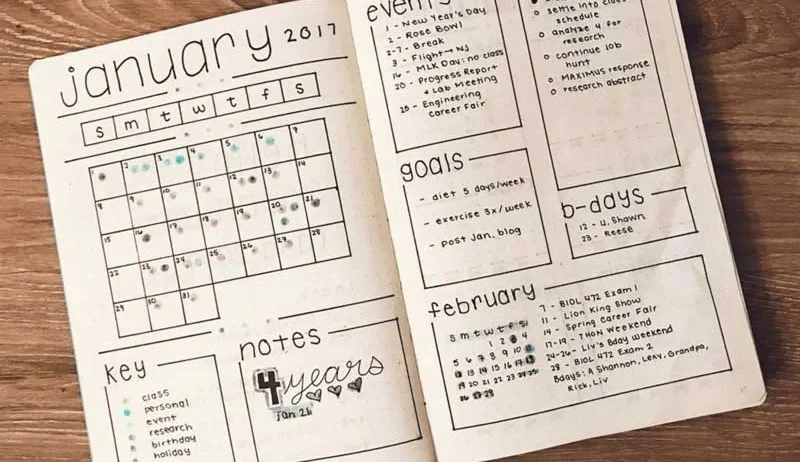 january 2017
s m t w t f s
1 2 3 4 5 6 7
8 9 10 11 12 13 14
15 16 17 18 19 20 21
22 23 24 25 26 27 28
29 30 31
key
class
personal
event
research
birthday
holiday
notes
4 years
Jan 21
events
1 - New Year's Day
2 - Rose Bowl
2-7 - Break
3 - Flight → NJ
16 - MLK Day: no class
20 - Progress Report
+ Lab Meeting
25 - Engineering
Career Fair
settle into class
schedule
analyze 4 for
research
continue job
hunt
MAXIMUS response
research abstract
goals
- diet 5 days/week
- exercise 3x/week
- post Jan. blog
b-days
12 - U. Shawn
23 - Reese
february
s m t w t f s
1 2 3 4
5 6 7 8 9 10 11
12 13 14 15 16 17 18
19 20 21 22 23 24 25
26 27 28
7 - BIOL 472 Exam 1
11 - Lion King Show
14 - Spring Career Fair
17-19 - THON Weekend
24-26 - Liv's Bday Weekend
28 - BIOL 472 Exam 2
Bdays: A. Shannon, Lexy, Grandpa,
Rick, Liv